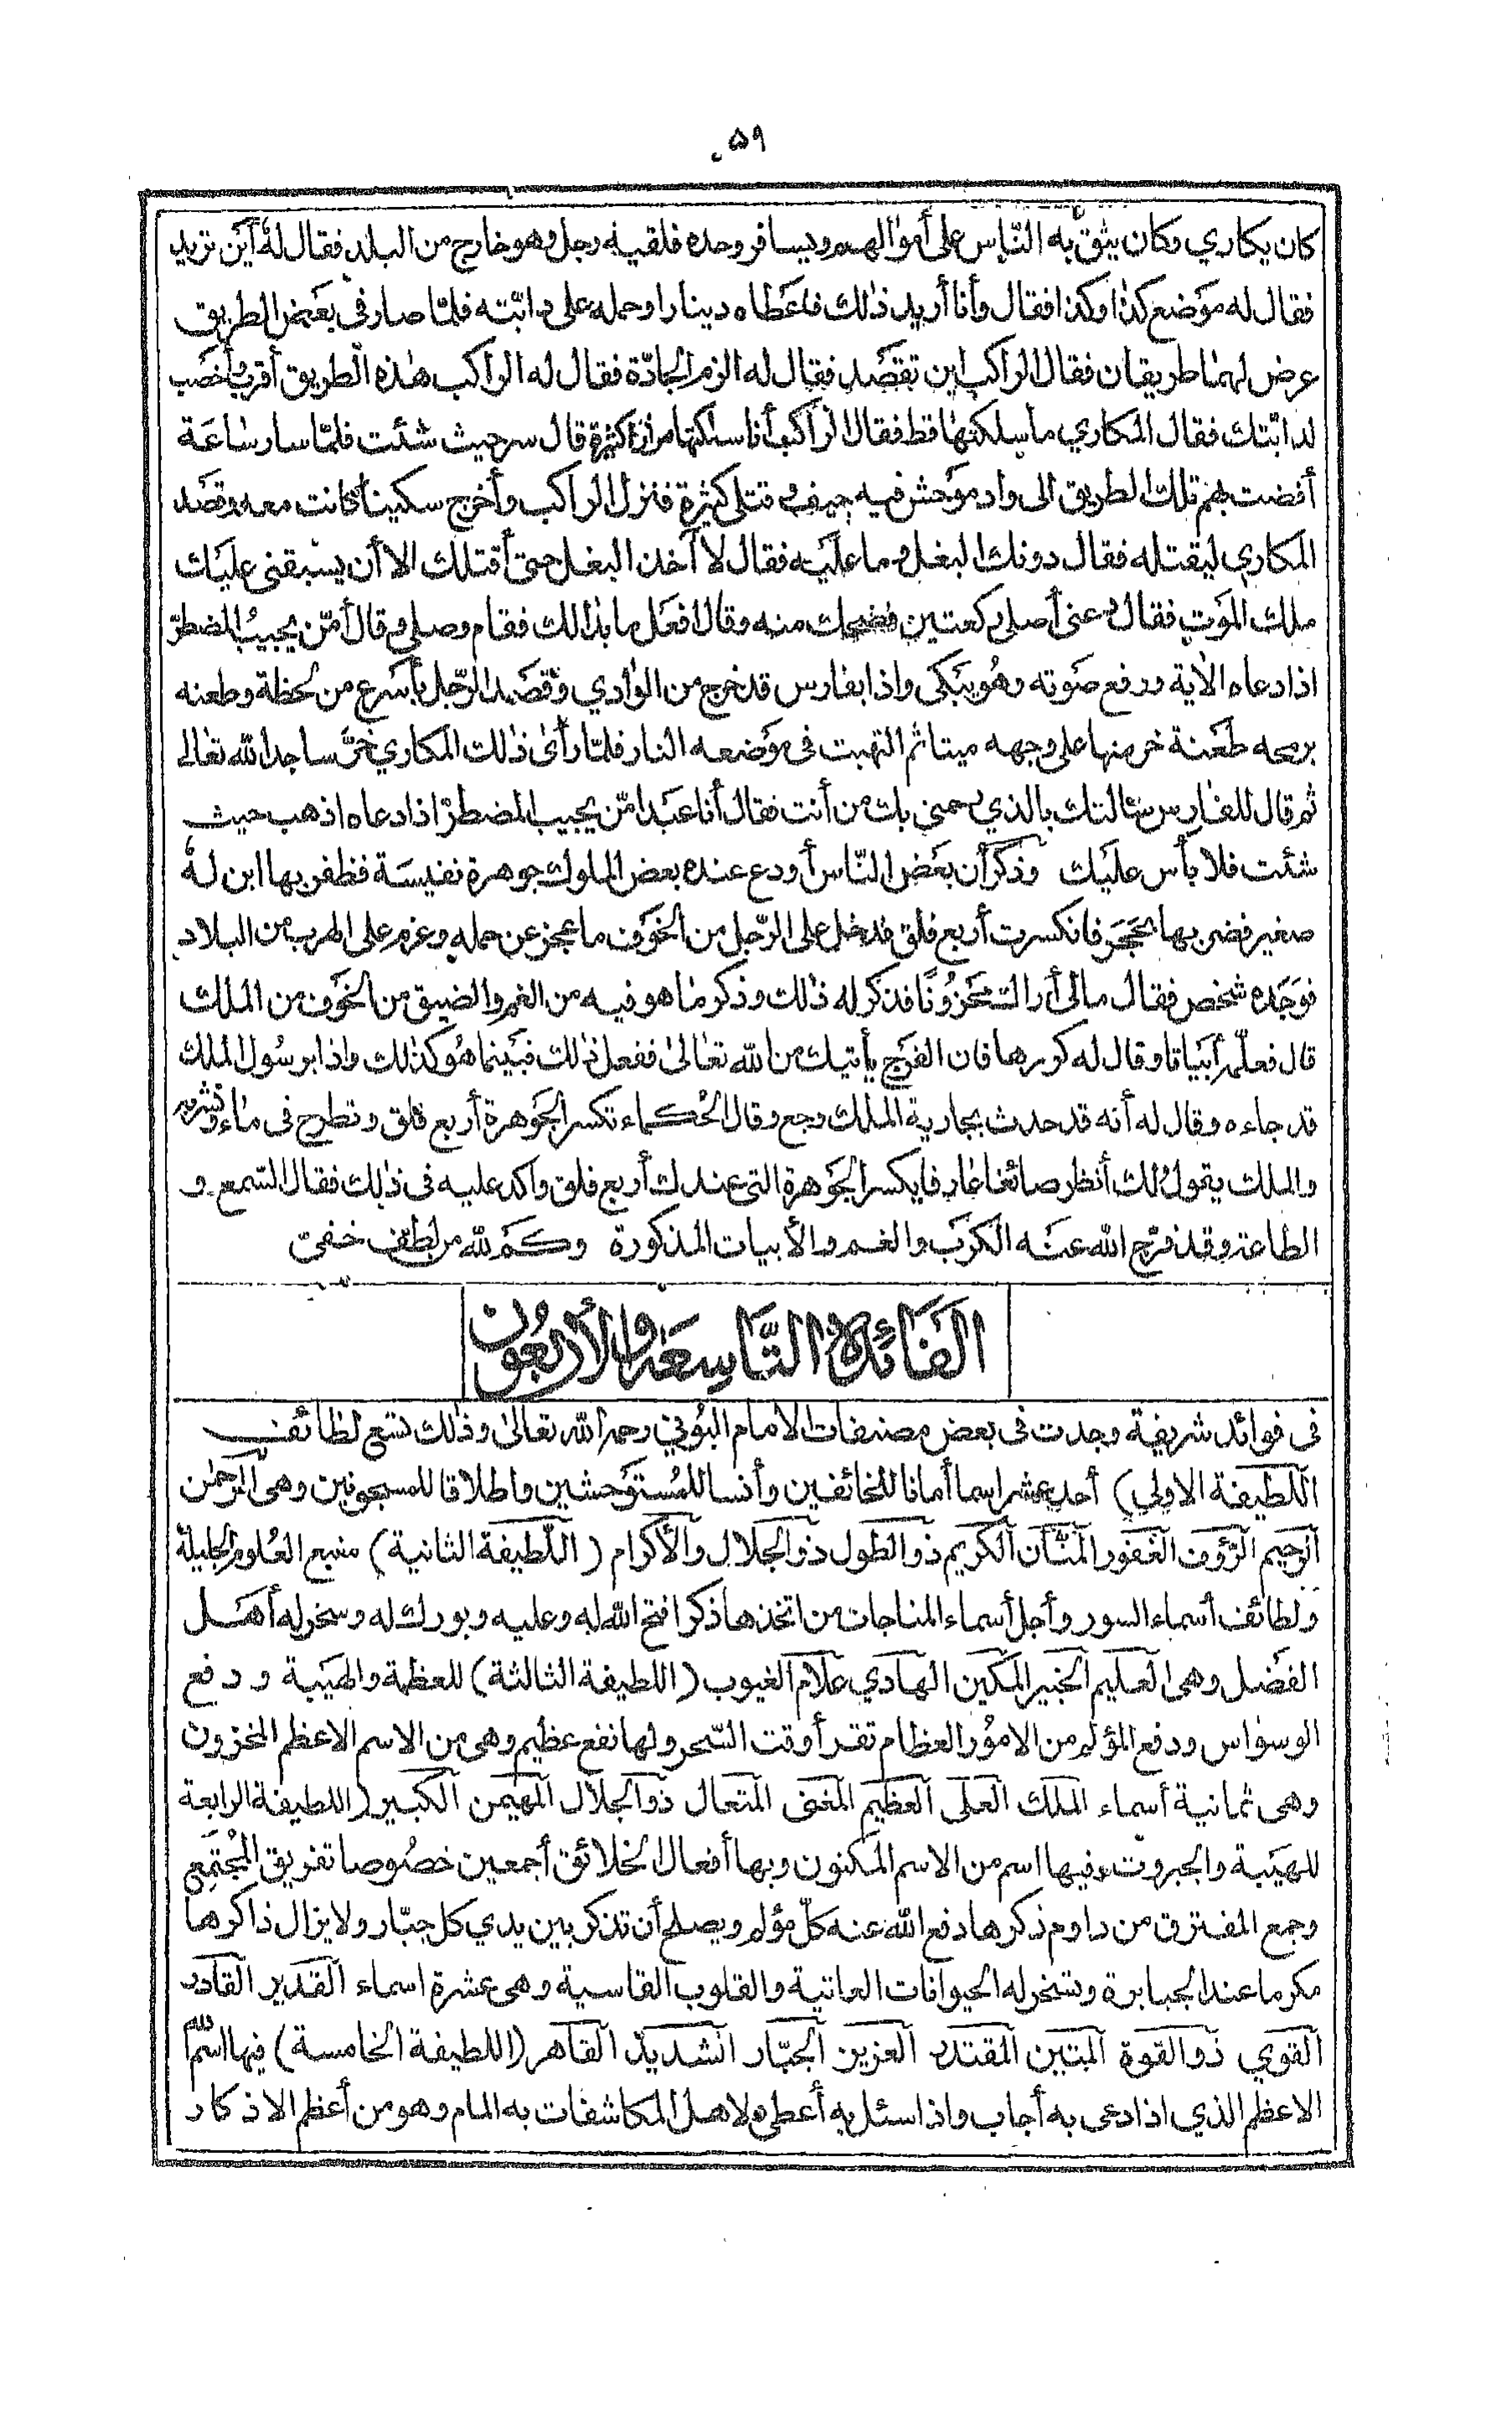 ٥٩
كان يكاري وكان يثق به النّاس على أموالهم ويسافر وحده فلقيه رجل وهو خارج من البلد فقال له أين تريد
فقال له موضع كذا وكذا فقال وأنا أريد ذلك فأعطاه دينارا وحمله على دابّته فلمّا صار في بعض الطريق
عرض لهما طريقان فقال الراكب اين تقصد فقال له الزم الجادّة فقال له الراكب هذه الطريق أقرب وأخصب
لدابّتك فقال المكاري ما سلكتها قط فقال الراكب أنا سلكتها مرارا كثيرة قال سر حيث شئت فلمّا سار ساعة
أفضت بهم تلك الطريق الى واد موحش فيه جيف وقتلى كثيرة فنزل الراكب وأخرج سكينا كانت معه وقصد
المكاري ليقتله فقال دونك البغل وما عليه فقال لا آخذ البغل حتى أقتلك الا أن يسبقني عليك
ملك الموت فقال دعني أصلي ركعتين فضحك منه وقال افعل ما بذالك فقام وصلى وقال أمّن يجيب المضطرّ
اذا دعاه الاٰية ورفع صوته وهو يبكي واذا بفارس قد خرج من الوادي وقصد الرّجل بأسرع من لحظة وطعنه
برمحه طعنة خر منها على وجهه ميتا ثم التهبت في موضعه النار فلمّا رأى ذلك المكاري خرّ ساجدا لله تعالى
ثم قال للفارس سئالتك بالذي رحمني بك من أنت فقال أنا عبد امّن يجيب المضطرّ اذا دعاه اذهب حيث
شئت فلا بأس عليك وذكر أن بعض النّاس أودع عنده بعض الملوك جوهرة نفيسة فظفر بها ابن له
صغير فضرب بها الحجر فانكسرت أربع فلق فدخل على الرّجل من الخوف ما عجز عن حمله وعزم على الهرب من البلاد
فوجده شخص فقال مالي أراك محزونًا فذكر له ذلك وذكر ما هو فيه من الغم والضيق من الخوف من الملك
قال فعلّمه أبياتا وقال له كررها فان الفرج يأتيك من الله تعالى ففعل ذلك فبينما هو كذلك واذا برسول الملك
قد جاءه وقال له أنه قد حدث بجارية الملك وجع وقال الحكماء تكسر الجوهرة أربع فلق وتطرح في ماء وتشربه
والملك يقول لك أنظر صائغا عارفا يكسر الجوهرة التي عندك أربع فلق واكد عليه في ذلك فقال السّمع و
الطاعة وقد فرّج الله عنه الكرب والغم والأبيات المذكورة وكم لله من لطف خفي
الفائدة التّاسعة والأربعون
في فوائد شريفة وجدت في بعض مصنفات الامام البوني رحمه الله تعالى وذلك تسع لطائف
اللطيفة الاولي) أحد عشر اسما أمانا للخائفين وأنسا للمستوحشين واطلاقا للمسجونين وهي الرحمٰن
الرحيم الرّؤف الغفور المنّان الكريم ذو الطول ذو الجلال والأكرام (اللّطيفة الثانية) منبع العلوم الجليلة
ولطائف أسماء السور وأجل أسماء المناجات من اتخذها ذكرا فتح الله له وعليه وبورك له وسخر له أهل
الفضل وهي العليم الخبير المكين الهادي علام الغيوب (اللطيفة الثالثة) للعظمة والهيبة ودفع
الوسواس ودفع المؤلم من الامور العظام تقرأ وقت السّحر ولها نفع عظيم وهي من الاسم الاعظم المخزون
وهي ثمانية أسماء الملك العلي العظيم المغني المتعال ذو الجلال المهيمن الكبير (اللطيفة الرابعة
للهيبة والجبروت وفيها اسم من الاسم المكنون وبها أفعال الخلائق أجمعين خصوصا تفريق المجتمع
وجمع المفترق من داوم ذكرها دفع الله عنه كلّ مؤلم ويصلح أن تذكر بين يدي كل جبّار ولا يزال ذاكرها
مكرما عند الجبابرة وتسخر له الحيوانات العاتية والقلوب القاسية وهي عشرة اسماء القدير القادر
القوي ذو القوة المتين المقتدر العزيز الجبّار الشديد القاهر (اللطيفة الخامسة) فيها اسم الله
الاعظم الذي اذا دعي به أجاب واذا سئل به أعطى ولاهل المكاشفات به المام وهو من أعظم الاذكار